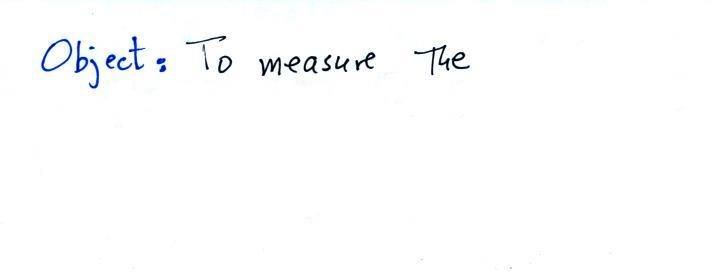 Object: To measure The